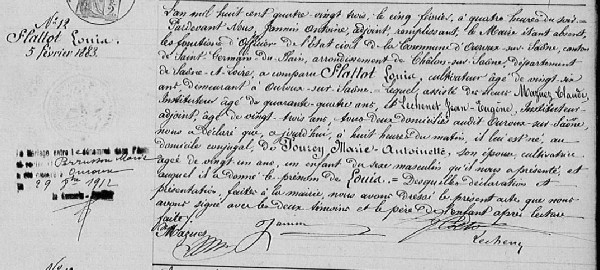 N° 12
Flattot Louis
5 février 1883.
L'an mil huit cent quatre vingt trois, le cinq février, à quatre heures du soir.
Pardevant Nous Jannin Antoine, adjoint, remplissant, le Maire étant absent,
les fonctions d'Officier de l'Etat civil de la Commune d'Ouroux sur Saône, canton
de Saint-Germain du Plain, arrondissement de Châlon-sur-Saône, département
de Saône-et-Loire, a comparu Flattot Louis, cultivateur âgé de vingt-six
ans, demeurant à Ouroux sur-Saône. = Lequel, assisté des sieurs Magnez Claude,
Instituteur âgé de quarante-quatre ans, et Lechenet Jean-Eugène, Instituteur-
adjoint, âgé de vingt-trois ans, tous deux domiciliés audit Ouroux sur Saône
nous a déclaré que, aujourd'hui, à huit heures du matin, il lui est né, au
domicile conjugal, de Marie-Antoinette, son épouse, cultivatrice
âgée de vingt un ans, un enfant du sexe masculin qu'il nous a présenté, et
auquel il a donné le prénom de Louis. = Desquelles déclaration et
présentation, faites à la mairie, nous avons dressé le présent acte que nous
avons signé avec les deux témoins et le père de l'enfant après lecture
faite.
Le Mariage entre
et Marie
Ouroux
le 29 1912
Magnez
Jannin
Lechenet